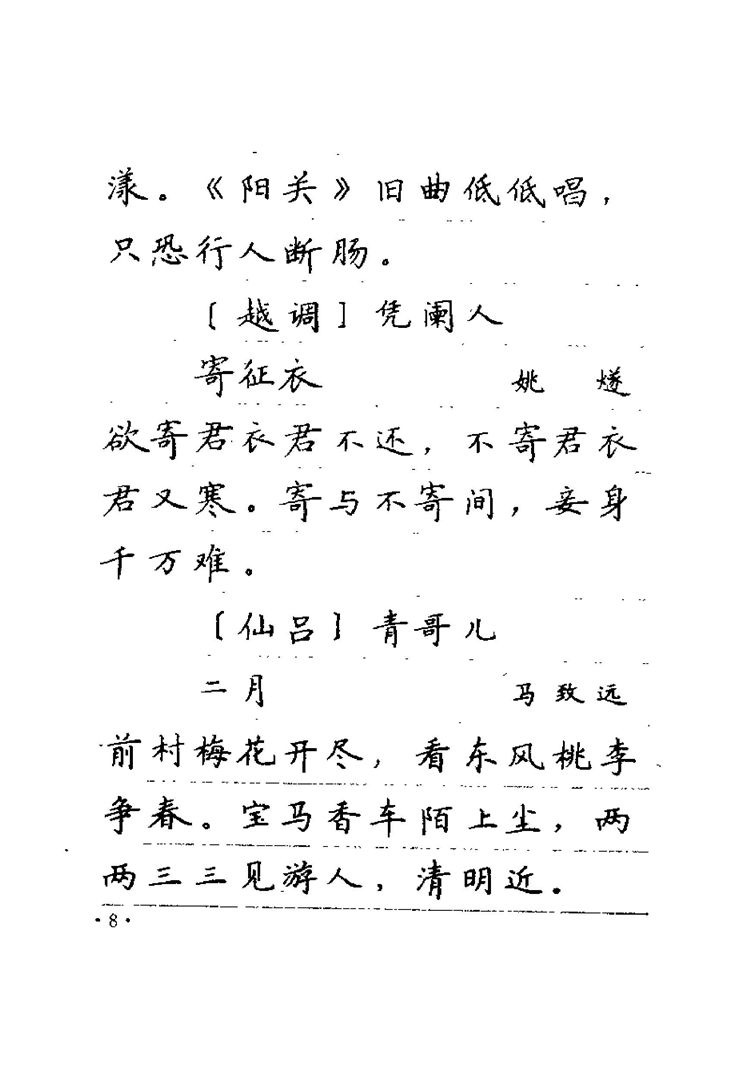 漾。《阳关》旧曲低低唱，
只恐行人断肠。
〔越调〕凭阑人
寄征衣 姚 燧
欲寄君衣君不还，不寄君衣
君又寒。寄与不寄间，妾身
千万难。
〔仙吕〕青哥儿
二月 马致远
前村梅花开尽，看东风桃李
争春。宝马香车陌上尘，两
两三三见游人，清明近。
·8·